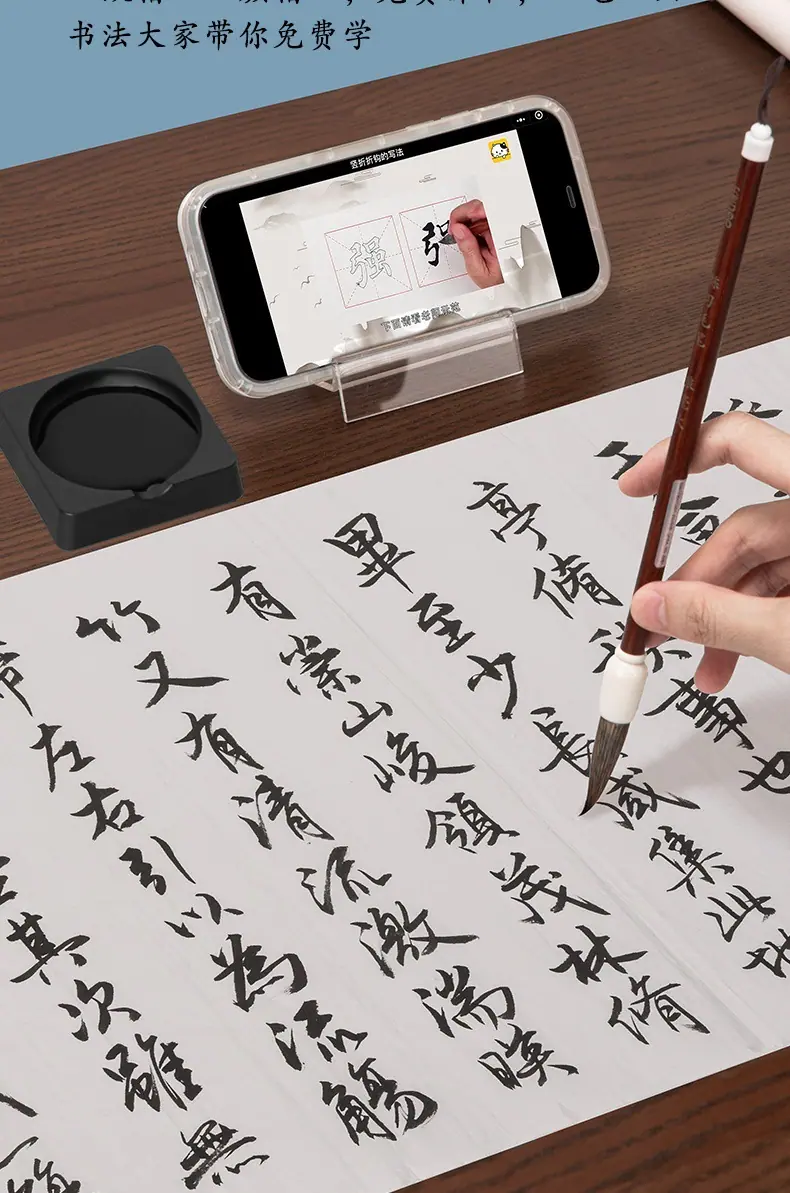 书法大家带你免费学
竖折折钩的写法
强
下面请看老师示范
亭脩禊事也
畢至少長咸集此地
有崇山峻領茂林脩
竹又有清流激湍暎
帶左右引以為流觴
坐其次雖無